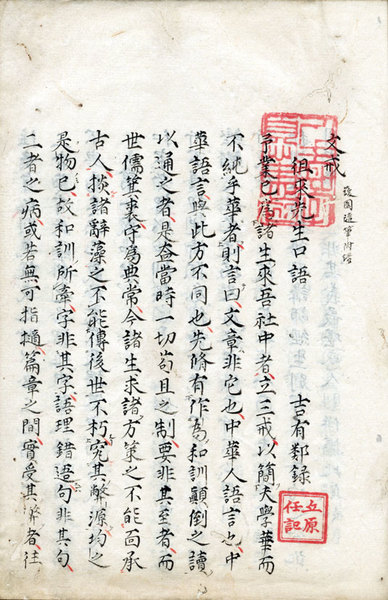 文戒 蘐園隨筆附錄
徂來先生口語 吉有鄰錄
予業已為諸生來吾社中者立三戒以簡夫學華而
不純乎華者則言曰文章非它也中華人語言也中
華語言與此方不同也先脩有作為和訓顛倒之讀
以通之者是盖當時一切苟且之制要非其至者而
世儒箕裘守為典常今諸生求諸方策之不能啻承
古人掞諸辭藻之不能傳後世不朽究其弊源均之
是物已故和訓所牽字非其字語理錯造句非其句
二者之病或若無可指擿篇章之間實受其弊者往
立原
任記